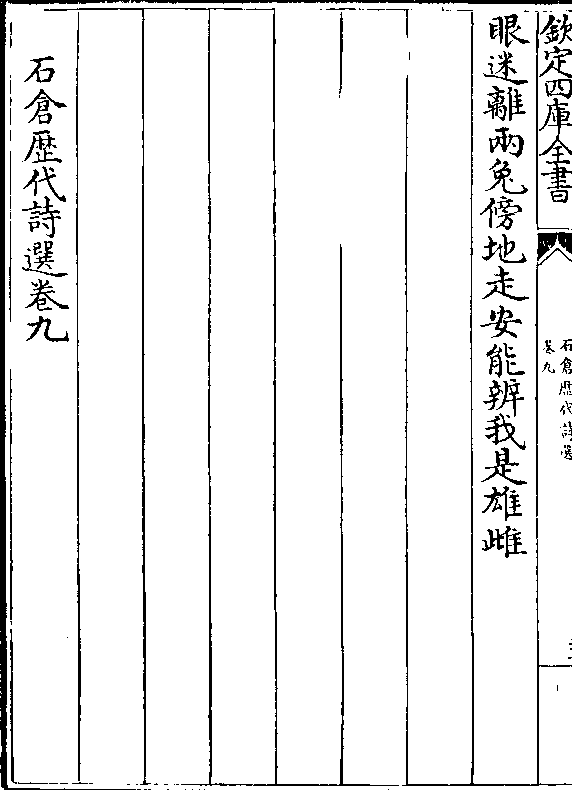 欽定四庫全書
石倉歷代詩選
卷九
眼迷離兩兔傍地走安能辨我是雄雌
石倉歷代詩選卷九